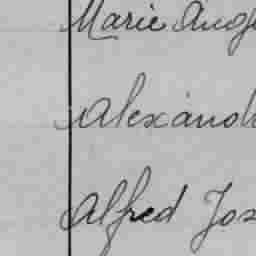 Marie Ang
Alexand
Alfred Jos